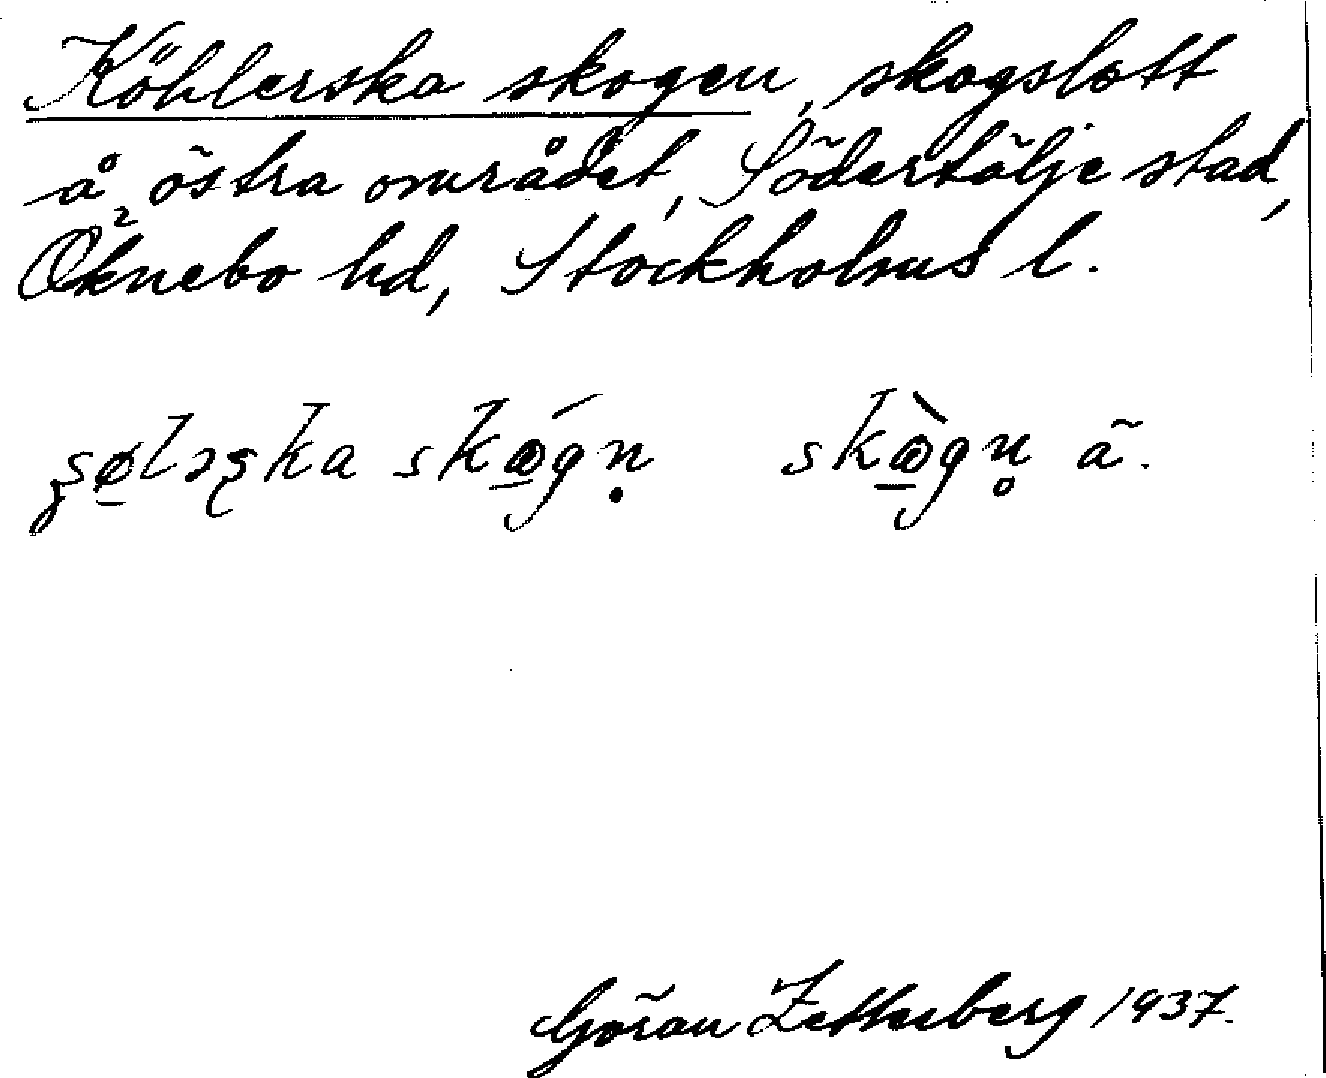 Köhlerska skogen, skogslott
å östra området, Södertälje stad,
Öknebo hd, Stockholms l.
skógn skògn ã.
Göran Zetterberg 1937.